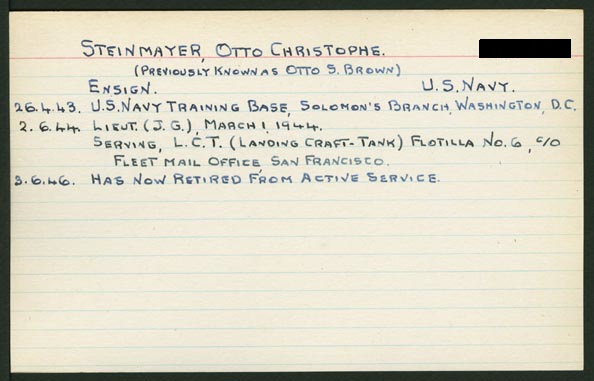 STEINMAYER, OTTO CHRISTOPHE.
(PREVIOUSLY KNOWN AS OTTO S. BROWN)
ENSIGN. U.S. NAVY.
26.4.43. U.S. NAVY TRAINING BASE, SOLOMON'S BRANCH, WASHINGTON, D.C.
2.6.44. LIEUT. (J.G.), MARCH 1, 1944.
SERVING, L.C.T. (LANDING CRAFT-TANK) FLOTILLA NO. 6, C/O
FLEET MAIL OFFICE, SAN FRANCISCO.
3.6.46. HAS NOW RETIRED FROM ACTIVE SERVICE.